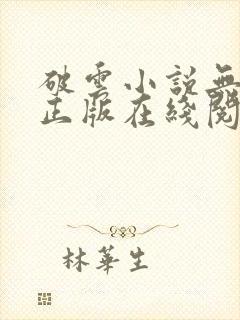 破雲小說無
正版在綫閱
林華生